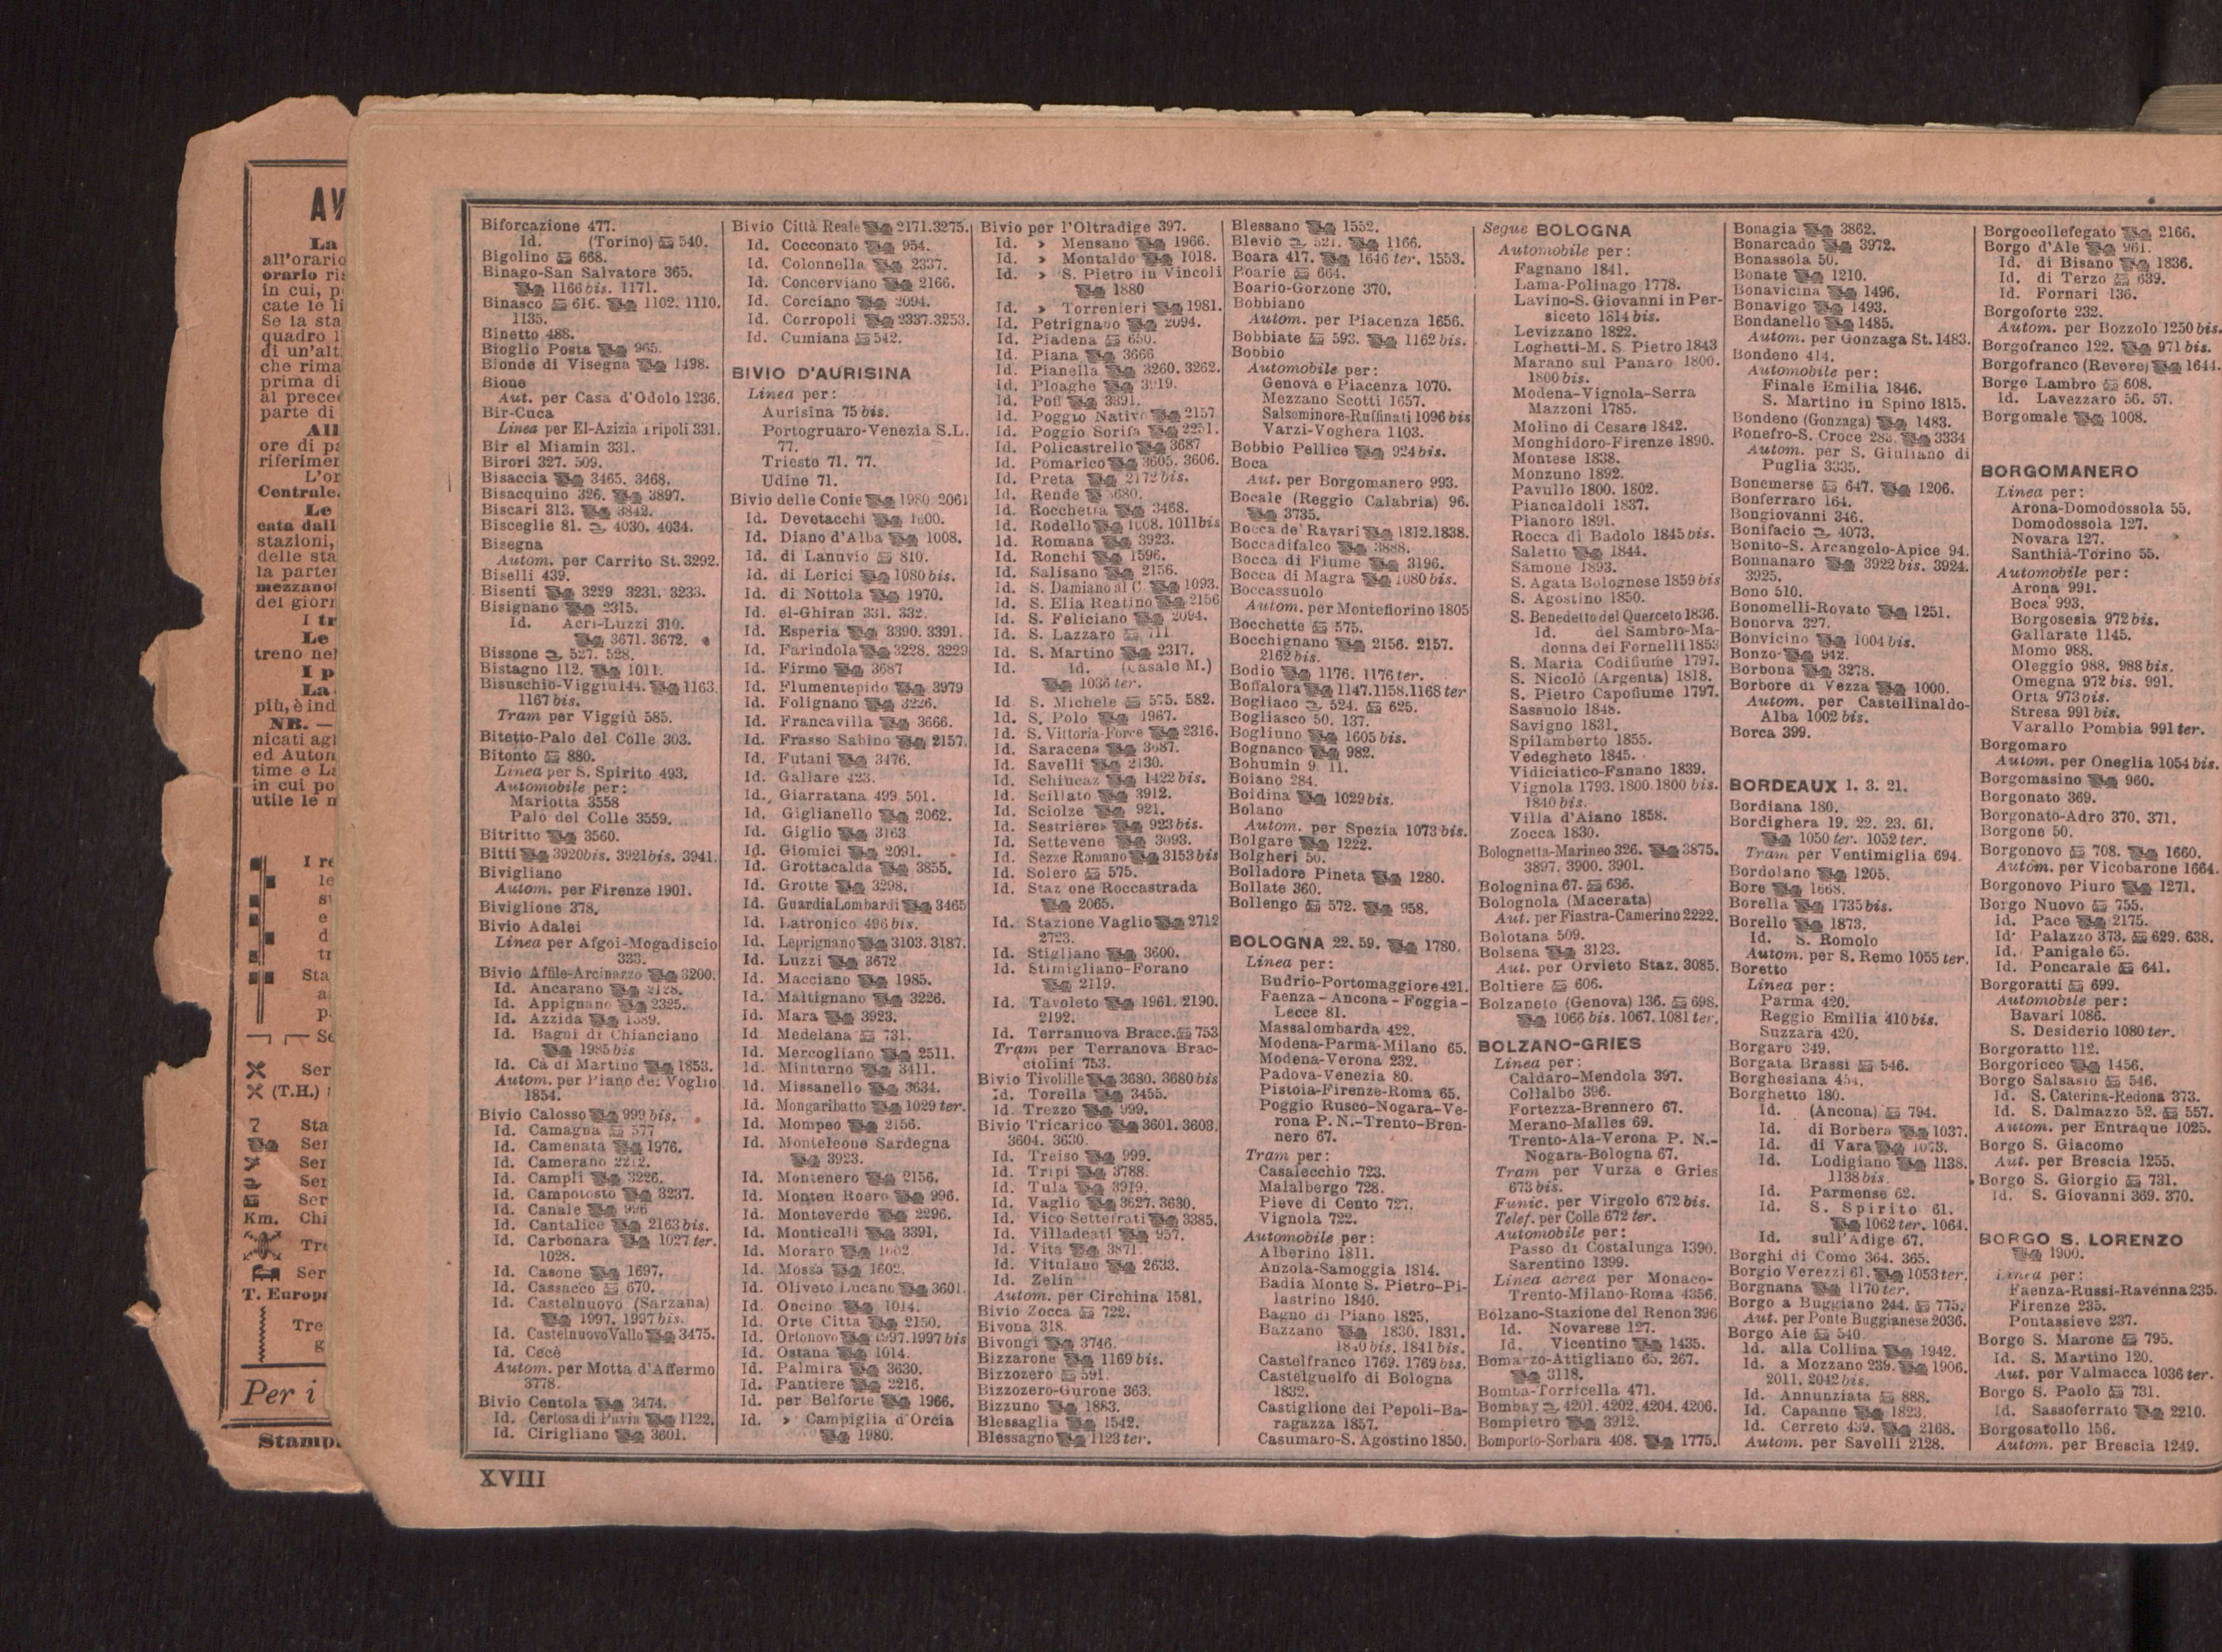 AV
La
all'orario
orario ris
in cui, p
cate le li
Se la sta
quadro 1
di un'alt
che rima
prima di
al prece
parte di
All
ore di pa
riferimen
L'or
Centrale.
Le
cata dall
stazioni,
delle sta
la parten
mezzanot
dei giorn
I tr
Le
treno nel
I p
La
più, è ind
NB. —
nicati agi
ed Autom
time e La
in cui po
utile le n
I re
le
Sta
Ser
(T.H.)
Sta
Ser
Ser
Ser
Ser
Km. Chi
Tre
Ser
T. Europ
Tre
g
Per i
Stamp
Biforcazione 477.
Id. (Torino) 540.
Bigolino 668.
Binago-San Salvatore 365.
1166 bis. 1171.
Binasco 616. 1102. 1110.
1135.
Binetto 488.
Bioglio Posta 965.
Bionde di Visegna 1498.
Bione
Aut. per Casa d'Odolo 1236.
Bir-Cuca
Linea per El-Azizia Tripoli 331.
Bir el Miamin 331.
Birori 327. 509.
Bisaccia 3465. 3468.
Bisacquino 326. 3897.
Biscari 313. 3842.
Bisceglie 81. 4030. 4034.
Bisegna
Autom. per Carrito St. 3292.
Biselli 439.
Bisenti 3229 3231. 3233.
Bisignano 2315.
Id. Acri-Luzzi 310.
3671. 3672.
Bissone 527. 528.
Bistagno 112. 1011.
Bisuschio-Viggiù 144. 1163.
1167 bis.
Tram per Viggiù 585.
Bitetto-Palo del Colle 303.
Bitonto 880.
Linea per S. Spirito 493.
Automobile per:
Mariotta 3558
Palo del Colle 3559.
Bitritto 3560.
Bitti 3920bis. 3921bis. 3941.
Bivigliano
Autom. per Firenze 1901.
Biviglione 378.
Bivio Adalei
Linea per Afgoi-Mogadiscio
333.
Bivio Affile-Arcinazzo 3200.
Id. Ancarano 2128.
Id. Appignano 2325.
Id. Azzida 1589.
Id. Bagni di Chianciano
1985 bis
Id. Cà di Martino 1853.
Autom. per Piano del Voglio
1854.
Bivio Calosso 999 bis.
Id. Camagna 577
Id. Camenata 1976.
Id. Camerano 2212.
Id. Campli 3226.
Id. Campotosto 3237.
Id. Canale 996
Id. Cantalice 2163 bis.
Id. Carbonara 1027 ter.
1028.
Id. Casone 1697.
Id. Cassacco 670.
Id. Castelnuovo (Sarzana)
1997. 1997 bis.
Id. Castelnuovo Vallo 3475.
Id. Cecè
Autom. per Motta d'Affermo
3778.
Bivio Centola 3474.
Id. Certosa di Pavia 1122.
Id. Cirigliano 3601.
Bivio Città Reale 2171. 3275.
Id. Cocconato 954.
Id. Colonnella 2337.
Id. Concerviano 2166.
Id. Corciano 2094.
Id. Corropoli 2337. 3253.
Id. Cumiana 542.
BIVIO D'AURISINA
Linea per:
Aurisina 75 bis.
Portogruaro-Venezia S.L.
77.
Trieste 71. 77.
Udine 71.
Bivio delle Conie 1980 2061
Id. Devetacchi 1600.
Id. Diano d'Alba 1008.
Id. di Lanuvio 810.
Id. di Lerici 1080 bis.
Id. di Nottola 1970.
Id. el-Ghiran 331. 332.
Id. Esperia 3390. 3391.
Id. Farindola 3228. 3229
Id. Firmo 3687
Id. Flumentepido 3979
Id. Folignano 3226.
Id. Francavilla 3666.
Id. Frasso Sabino 2157.
Id. Futani 3476.
Id. Gallare 423.
Id. Giarratana 499 501.
Id. Giglianello 2062.
Id. Giglio 3163
Id. Giomici 2091.
Id. Grottacalda 3855.
Id. Grotte 3298.
Id. Guardia Lombardi 3465
Id. Latronico 496 bis.
Id. Leprignano 3103. 3187.
Id. Luzzi 3672
Id. Macciano 1985.
Id. Maltignano 3226.
Id. Mara 3923.
Id. Medelana 731.
Id. Mercogliano 2511.
Id. Minturno 3411.
Id. Missanello 3634.
Id. Mongaribatto 1029 ter.
Id. Mompeo 2156.
Id. Monteleone Sardegna
3923.
Id. Montenero 2156.
Id. Monteu Roero 996.
Id. Monteverde 2296.
Id. Monticelli 3391.
Id. Moraro 1602
Id. Mossa 1602.
Id. Oliveto Lucano 3601.
Id. Oncino 1014.
Id. Orte Città 2150.
Id. Ortonovo 1997. 1997 bis
Id. Ostana 1014.
Id. Palmira 3630.
Id. Pantiere 2216.
Id. per Belforte 1966.
Id. » Campiglia d'Orcia
1980.
Bivio per l'Oltradige 397.
Id. » Mensano 1966.
Id. » Montaldo 1018.
Id. » S. Pietro in Vincoli
1880
Id. » Torrenieri 1981.
Id. Petrignano 2094.
Id. Piadena 650.
Id. Piana 3666
Id. Pianella 3260. 3262.
Id. Ploaghe 3919.
Id. Pofi 3391.
Id. Poggio Nativo 2157
Id. Poggio Sorifa 2251.
Id. Policastrello 3687
Id. Pomarico 3605. 3606.
Id. Preta 2172 bis.
Id. Rende 3680.
Id. Rocchetta 3468.
Id. Rodello 1008. 1011 bis
Id. Romana 3923.
Id. Ronchi 1596.
Id. Salisano 2156.
Id. S. Damiano al C 1093.
Id. S. Elia Reatino 2156
Id. S. Feliciano 2094.
Id. S. Lazzaro 711
Id. S. Martino 2317.
Id. Id. (Casale M.)
1036 ter.
Id S. Michele 575. 582.
Id. S. Polo 1967.
Id. S. Vittoria-Force 2316.
Id. Saracena 3687.
Id. Savelli 2130.
Id. Schiucaz 1422 bis.
Id. Scillato 3912.
Id. Sciolze 921.
Id. Sestrieres 923 bis.
Id. Settevene 3093.
Id. Sezze Romano 3153 bis
Id. Solero 575.
Id. Staz one Roccastrada
2065.
Id. Stazione Vaglio 2712
2723.
Id. Stigliano 3600.
Id. Stimigliano-Forano
2119.
Id. Tavoleto 1961. 2190.
2192.
Id. Terranuova Bracc. 753
Tram per Terranova Brac-
ciolini 753.
Bivio Tivolille 3680. 3680 bis
Id. Torella 3455.
Id. Trezzo 999.
Bivio Tricarico 3601. 3603.
3604. 3630.
Id. Treiso 999.
Id. Tripi 3788.
Id. Tula 3919.
Id. Vaglio 3627. 3630.
Id. Vico Settefrati 3385.
Id. Villadeati 957.
Id. Vita 3871.
Id. Vitulano 2633.
Id. Zelin
Autom. per Circhina 1581.
Bivio Zocca 722.
Bivona 318.
Bivongi 3746.
Bizzarone 1169 bis.
Bizzozero 591.
Bizzozero-Gurone 363.
Bizzuno 1883.
Blessaglia 1542.
Blessagno 1123 ter.
Blessano 1552.
Blevio 521. 1166.
Boara 417. 1646 ter. 1553.
Boarie 664.
Boario-Gorzone 370.
Bobbiano
Autom. per Piacenza 1656.
Bobbiate 593. 1162 bis.
Bobbio
Automobile per:
Genova e Piacenza 1070.
Mezzano Scotti 1657.
Salsominore-Ruffinati 1096 bis
Varzi-Voghera 1103.
Bobbio Pellice 924 bis.
Boca
Aut. per Borgomanero 993.
Bocale (Reggio Calabria) 96.
3735.
Bocca de' Ravari 1812. 1838.
Boccadifalco 3888.
Bocca di Fiume 3196.
Bocca di Magra 1080 bis.
Boccassuolo
Autom. per Montefiorino 1805
Bocchette 575.
Bocchignano 2156. 2157.
2162 bis.
Bodio 1176. 1176 ter.
Boffalora 1147. 1158. 1168 ter
Bogliaco 524. 625.
Bogliasco 50. 137.
Bogliuno 1605 bis.
Bognanco 982.
Bohumin 9. 11.
Boiano 284.
Boidina 1029 bis.
Bolano
Autom. per Spezia 1073 bis.
Bolgare 1222.
Bolgheri 50.
Bolladore Pineta 1280.
Bollate 360.
Bollengo 572. 958.
BOLOGNA 22. 59. 1780.
Linea per:
Budrio-Portomaggiore 421.
Faenza - Ancona - Foggia -
Lecce 81.
Massalombarda 422.
Modena-Parma-Milano 65.
Modena-Verona 232.
Padova-Venezia 80.
Pistoia-Firenze-Roma 65.
Poggio Rusco-Nogara-Ve-
rona P. N.-Trento-Bren-
nero 67.
Tram per:
Casalecchio 723.
Malalbergo 728.
Pieve di Cento 727.
Vignola 722.
Automobile per:
Alberino 1811.
Anzola-Samoggia 1814.
Badia Monte S. Pietro-Pi-
lastrino 1840.
Bagno di Piano 1825.
Bazzano 1830. 1831.
1840 bis. 1841 bis.
Castelfranco 1769. 1769 bis.
Castelguelfo di Bologna
1832.
Castiglione dei Pepoli-Ba-
ragazza 1857.
Casumaro-S. Agostino 1850.
Segue BOLOGNA
Automobile per:
Fagnano 1841.
Lama-Polinago 1778.
Lavino-S. Giovanni in Per-
siceto 1814 bis.
Levizzano 1822.
Loghetti-M. S. Pietro 1843
Marano sul Panaro 1800.
1800 bis.
Modena-Vignola-Serra
Mazzoni 1785.
Molino di Cesare 1842.
Monghidoro-Firenze 1890.
Montese 1838.
Monzuno 1892.
Pavullo 1800. 1802.
Piancaldoli 1837.
Pianoro 1891.
Rocca di Badolo 1845 bis.
Saletto 1844.
Samone 1893.
S. Agata Bolognese 1859 bis
S. Agostino 1850.
S. Benedetto del Querceto 1836.
Id. del Sambro-Ma-
donna dei Fornelli 1853
S. Maria Codifiume 1797.
S. Nicolò (Argenta) 1818.
S. Pietro Capofiume 1797.
Sassuolo 1848.
Savigno 1831.
Spilamberto 1855.
Vedegheto 1845.
Vidiciatico-Fanano 1839.
Vignola 1793. 1800. 1800 bis.
1840 bis.
Villa d'Aiano 1858.
Zocca 1830.
Bolognetta-Marineo 326. 3875.
3897. 3900. 3901.
Bolognina 67. 636.
Bolognola (Macerata)
Aut. per Fiastra-Camerino 2222.
Bolotana 509.
Bolsena 3123.
Aut. per Orvieto Staz. 3085.
Boltiere 606.
Bolzaneto (Genova) 136. 698.
1066 bis. 1067. 1081 ter.
BOLZANO-GRIES
Linea per:
Caldaro-Mendola 397.
Collalbo 396.
Fortezza-Brennero 67.
Merano-Malles 69.
Trento-Ala-Verona P. N.-
Nogara-Bologna 67.
Tram per Vurza e Gries
673 bis.
Funic. per Virgolo 672 bis.
Telef. per Colle 672 ter.
Automobile per:
Passo di Costalunga 1390.
Sarentino 1399.
Linea aerea per Monaco-
Trento-Milano-Roma 4356.
Bolzano-Stazione del Renon 396
Id. Novarese 127.
Id. Vicentino 1435.
Bomarzo-Attigliano 65. 267.
3118.
Bomba-Torricella 471.
Bombay 4201. 4202. 4204. 4206.
Bompietro 3912.
Bomporto-Sorbara 408. 1775.
Bonagia 3862.
Bonarcado 3972.
Bonassola 50.
Bonate 1210.
Bonavicina 1496.
Bonavigo 1493.
Bondanello 1485.
Autom. per Gonzaga St. 1483.
Bondeno 414.
Automobile per:
Finale Emilia 1846.
S. Martino in Spino 1815.
Bondeno (Gonzaga) 1483.
Bonefro-S. Croce 283. 3334
Autom. per S. Giuliano di
Puglia 3335.
Bonemerse 647. 1206.
Bonferraro 164.
Bongiovanni 346.
Bonifacio 4073.
Bonito-S. Arcangelo-Apice 94.
Bonnanaro 3922 bis. 3924.
3925.
Bono 510.
Bonomelli-Rovato 1251.
Bonorva 327.
Bonvicino 1004 bis.
Bonzo 942.
Borbona 3278.
Borbore di Vezza 1000.
Autom. per Castellinaldo-
Alba 1002 bis.
Borca 399.
BORDEAUX 1. 3. 21.
Bordiana 180.
Bordighera 19. 22. 23. 61.
1050 ter. 1052 ter.
Tram per Ventimiglia 694.
Bordolano 1205.
Bore 1668.
Borella 1735 bis.
Borello 1873.
Id. S. Romolo
Autom. per S. Remo 1055 ter.
Boretto
Linea per:
Parma 420.
Reggio Emilia 410 bis.
Suzzara 420.
Borgaro 349.
Borgata Brassi 546.
Borghesiana 454.
Borghetto 180.
Id. (Ancona) 794.
Id. di Borbera 1037.
Id. di Vara 1073.
Id. Lodigiano 1138.
1138 bis.
Id. Parmense 62.
Id. S. Spirito 61.
1062 ter. 1064.
Id. sull'Adige 67.
Borghi di Como 364. 365.
Borgio Verezzi 61. 1053 ter.
Borgnana 1170 ter.
Borgo a Buggiano 244. 775.
Aut. per Ponte Buggianese 2036.
Borgo Aie 540.
Id. alla Collina 1942.
Id. a Mozzano 239. 1906.
2011. 2042 bis.
Id. Annunziata 888.
Id. Capanne 1823.
Id. Cerreto 439. 2168.
Autom. per Savelli 2128.
Borgocollefegato 2166.
Borgo d'Ale 961.
Id. di Bisano 1836.
Id. di Terzo 639.
Id. Fornari 136.
Borgoforte 232.
Autom. per Bozzolo 1250 bis.
Borgofranco 122. 971 bis.
Borgofranco (Revere) 1644.
Borgo Lambro 608.
Id. Lavezzaro 56. 57.
Borgomale 1008.
BORGOMANERO
Linea per:
Arona-Domodossola 55.
Domodossola 127.
Novara 127.
Santhià-Torino 55.
Automobile per:
Arona 991.
Boca 993.
Borgosesia 972 bis.
Gallarate 1145.
Momo 988.
Oleggio 988. 988 bis.
Omegna 972 bis. 991.
Orta 973 bis.
Stresa 991 bis.
Varallo Pombia 991 ter.
Borgomaro
Autom. per Oneglia 1054 bis.
Borgomasino 960.
Borgonato 369.
Borgonato-Adro 370. 371.
Borgone 50.
Borgonovo 708. 1660.
Autom. per Vicobarone 1664.
Borgonovo Piuro 1271.
Borgo Nuovo 755.
Id. Pace 2175.
Id. Palazzo 373. 629. 638.
Id. Panigale 65.
Id. Poncarale 641.
Borgoratti 699.
Automobile per:
Bavari 1086.
S. Desiderio 1080 ter.
Borgoratto 112.
Borgoricco 1456.
Borgo Salsasio 546.
Id. S. Caterina-Redona 373.
Id. S. Dalmazzo 52. 557.
Autom. per Entraque 1025.
Borgo S. Giacomo
Aut. per Brescia 1255.
Borgo S. Giorgio 731.
Id. S. Giovanni 369. 370.
BORGO S. LORENZO
1900.
Linea per:
Faenza-Russi-Ravenna 235.
Firenze 235.
Pontassieve 237.
Borgo S. Marone 795.
Id. S. Martino 120.
Aut. per Valmacca 1036 ter.
Borgo S. Paolo 731.
Id. Sassoferrato 2210.
Borgosatollo 156.
Autom. per Brescia 1249.
XVIII